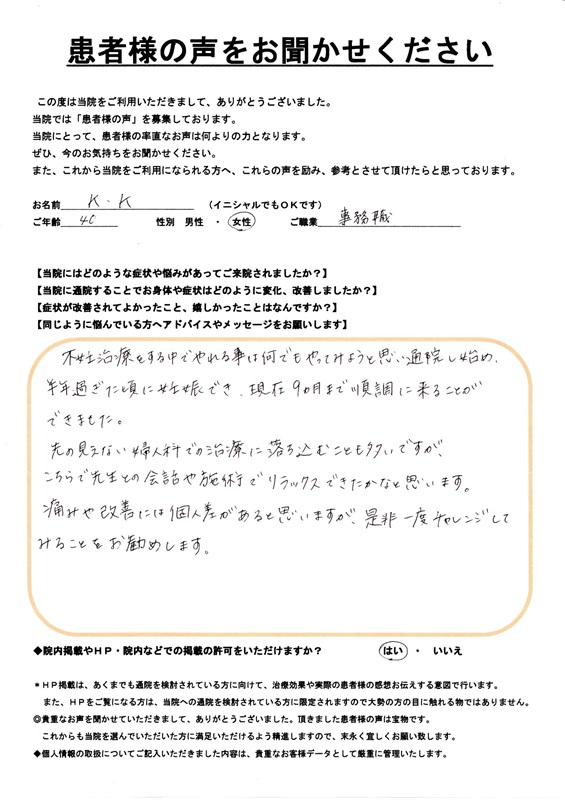 患者様の声をお聞かせください
この度は当院をご利用いただきまして、ありがとうございました。
当院では「患者様の声」を募集しております。
当院にとって、患者様の率直なお声は何よりの力となります。
ぜひ、今のお気持ちをお聞かせください。
また、これから当院をご利用になられる方へ、これらの声を励み、参考とさせて頂けたらと思っております。
お名前 K・K （イニシャルでもＯＫです）
ご年齢 40 性別 男性 ・ 女性 ご職業 事務職
【当院にはどのような症状や悩みがあってご来院されましたか？】
【当院に通院することでお身体や症状はどのように変化、改善しましたか？】
【症状が改善されてよかったこと、嬉しかったことはなんですか？】
【同じように悩んでいる方へアドバイスやメッセージをお願いします】
不妊治療をする中でやれる事は何でもやってみようと思い通院し始め、
半年過ぎた頃に妊娠でき、現在9ヵ月まで順調に来ることが
できました。
先の見えない婦人科での治療に落ち込むことも多いですが、
こちらで先生との会話や施術でリラックスできたかなと思います。
痛みや改善には個人差があると思いますが、是非一度チャレンジして
みることをお勧めします。
◆院内掲載やＨＰ・院内などでの掲載の許可をいただけますか？ はい ・ いいえ
＊ＨＰ掲載は、あくまでも通院を検討されている方に向けて、治療効果や実際の患者様の感想お伝えする意図で行います。
また、ＨＰをご覧になる方は、当院への通院を検討されている方に限定されますので大勢の方の目に触れる物ではありません。
◎貴重なお声を聞かせていただきまして、ありがとうございました。頂きました患者様の声は宝物です。
これからも当院を選んでいただいた方に満足いただけるよう精進しますので、末永く宜しくお願い致します。
◆個人情報の取扱についてご記入いただきました内容は、貴重なお客様データとして厳重に管理いたします。